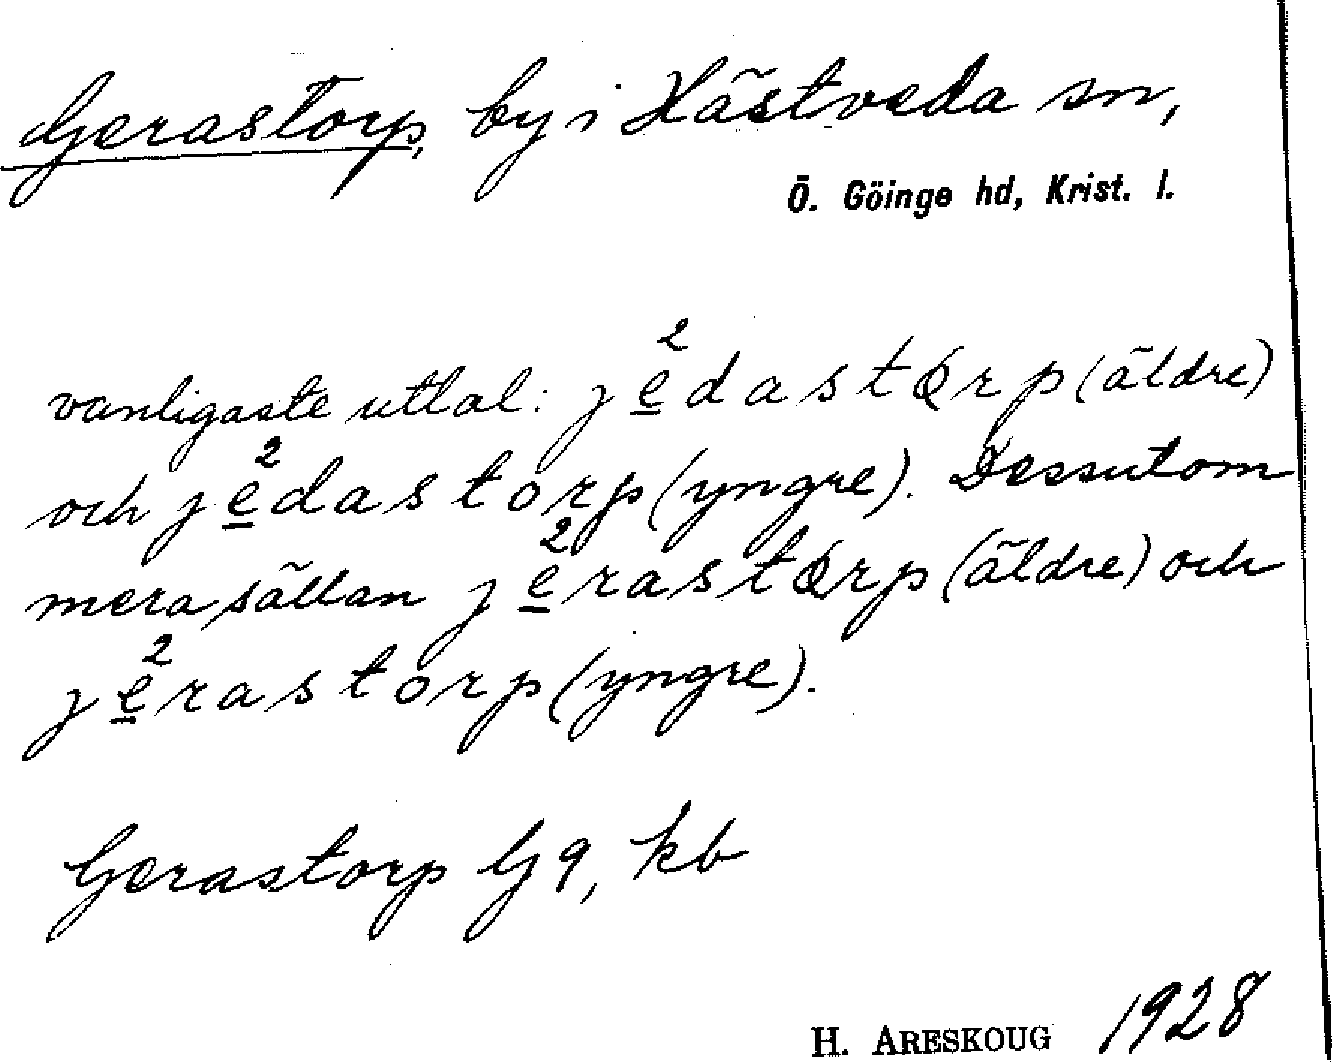 Gerastorp, by i Hästveda sn,
Ö. Göinge hd, Krist. l.
vanligaste uttal: je̲²dastQrp (äldre)
och je̲²dastorp (yngre). Dessutom
mera sällan je̲²rastQrp (äldre) och
je̲²rastorp (yngre).
Gerastorp G 9, kb
H. ARESKOUG 1928